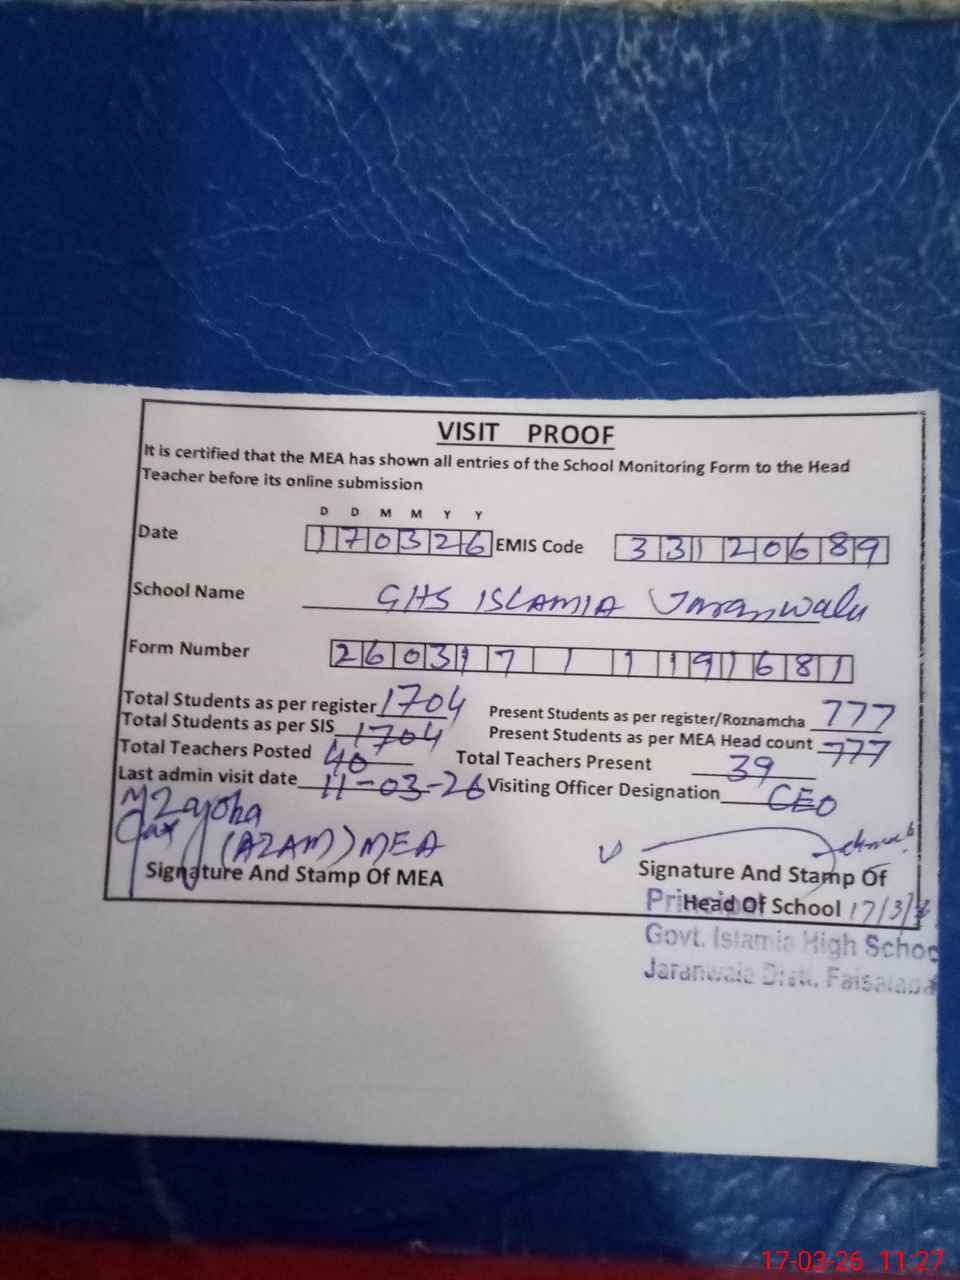 VISIT PROOF
It is certified that the MEA has shown all entries of the School Monitoring Form to the Head
Teacher before its online submission
D D M M Y Y
Date 170326 EMIS Code 33120689
School Name GHS ISLAMIA Jaranwala
Form Number 26031711191681
Total Students as per register 1704 Present Students as per register/Roznamcha 777
Total Students as per SIS 1704 Present Students as per MEA Head count 777
Total Teachers Posted 40 Total Teachers Present 39
Last admin visit date 11-03-26 Visiting Officer Designation CEO
(AZAM) MEA
Signature And Stamp Of MEA Signature And Stamp Of
Head Of School 17/3/
Principal
Govt. Islamia High School
Jaranwala Distt. Faisalabad
17-03-26 11:27